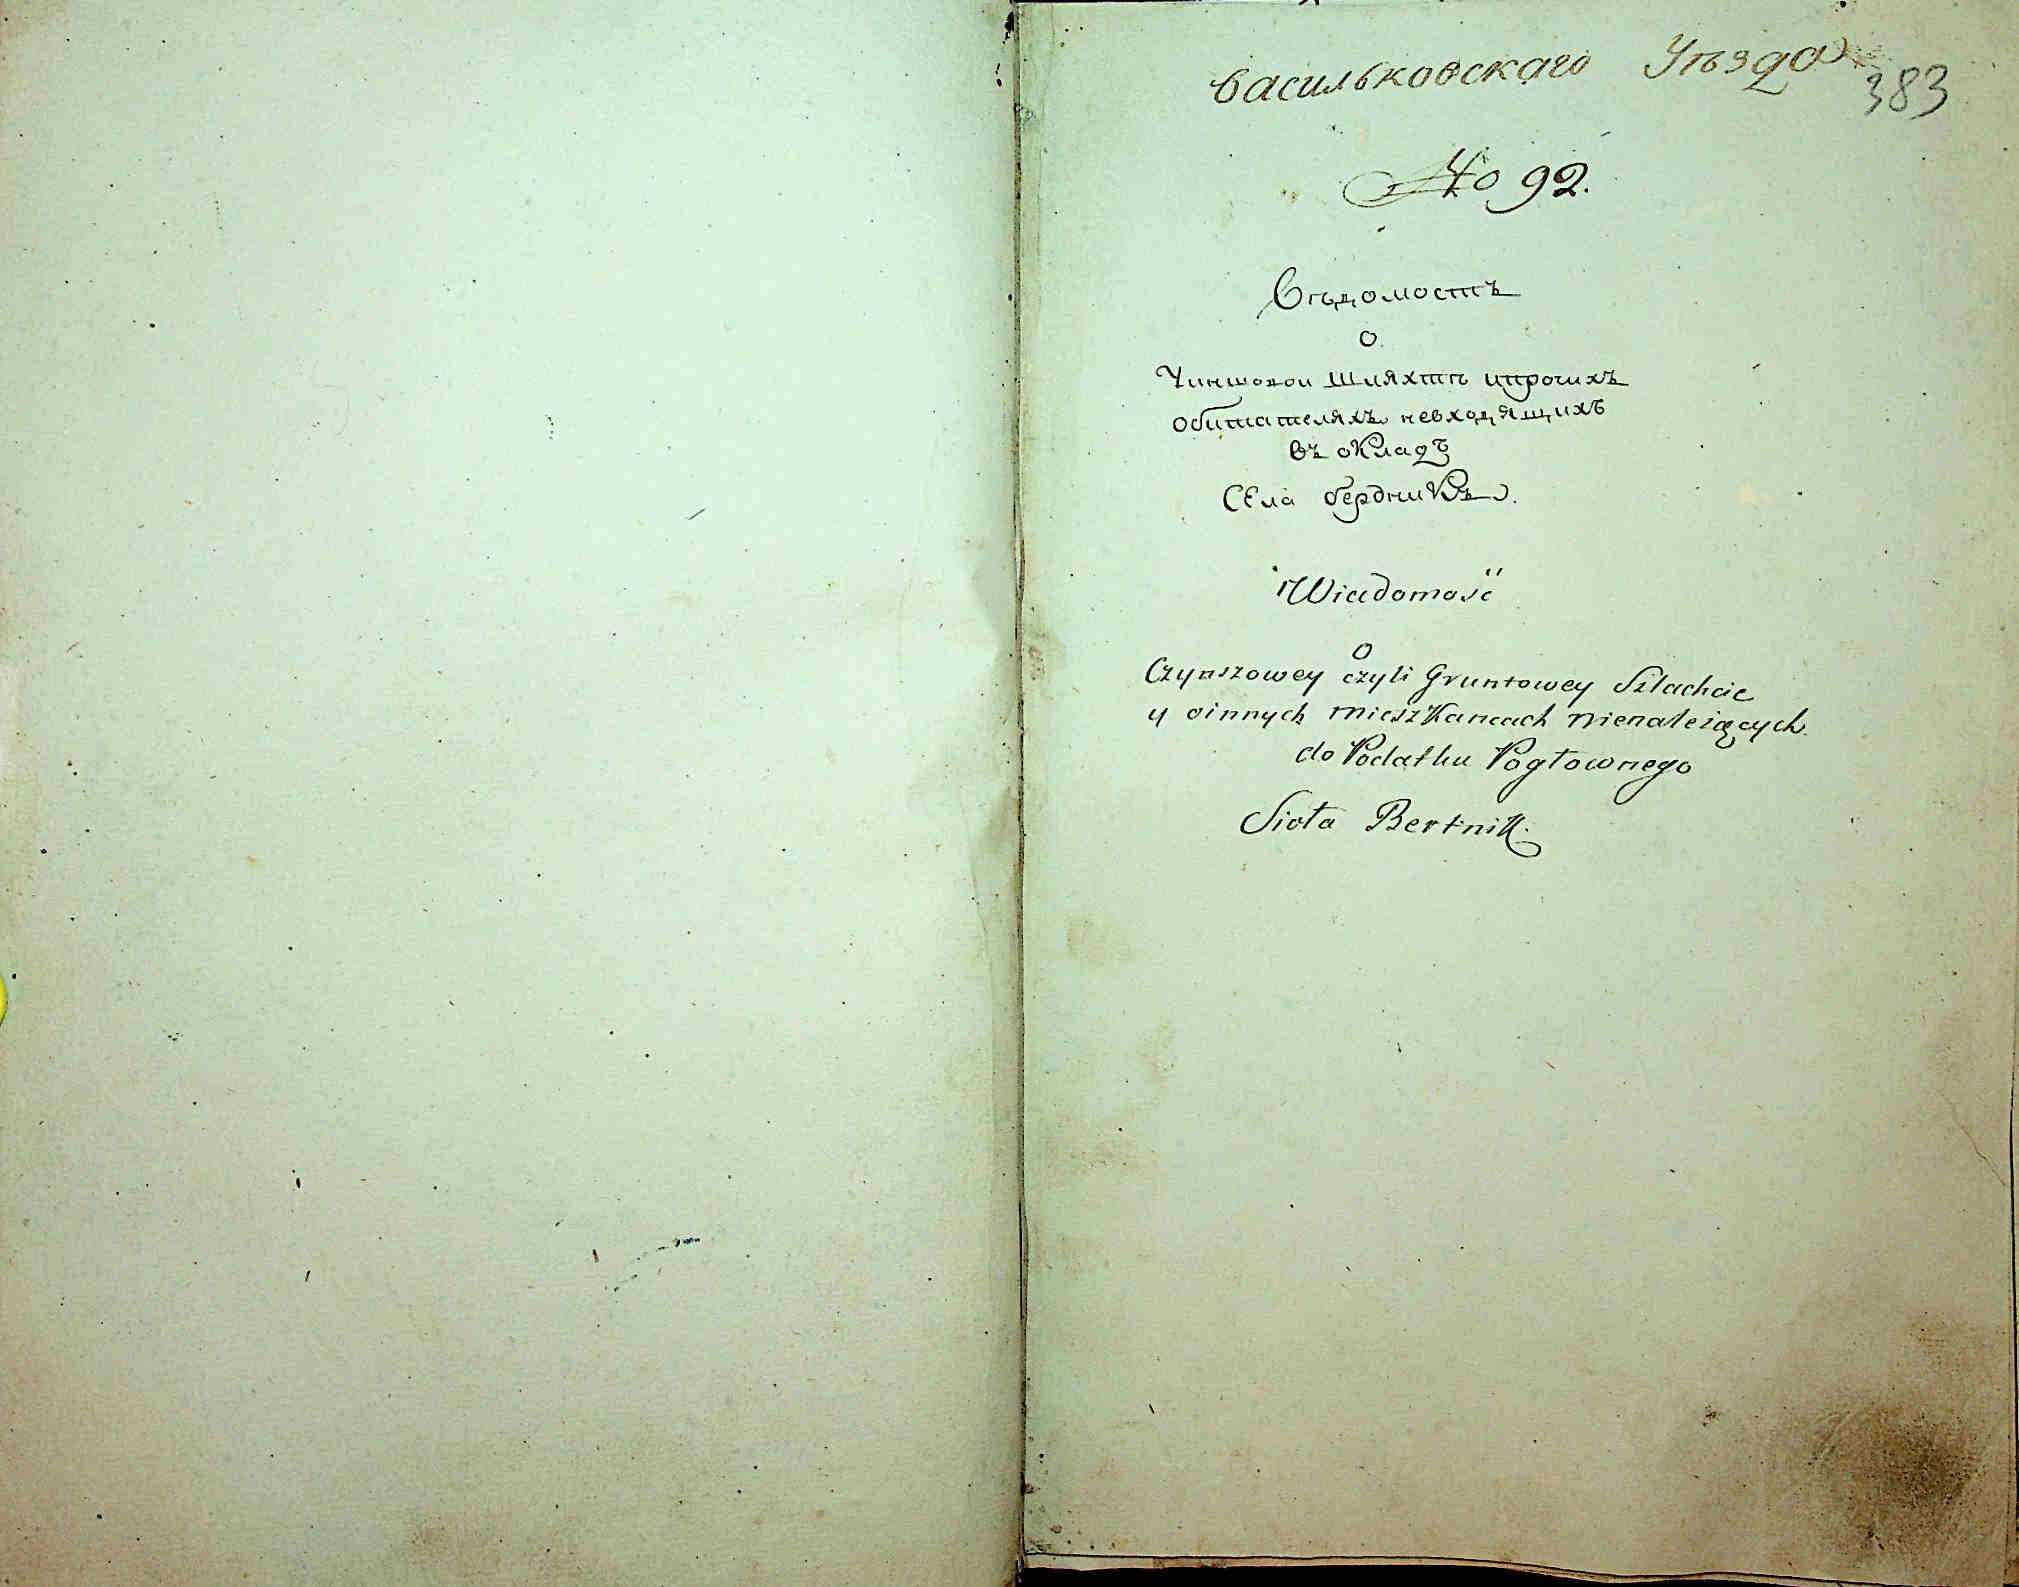 Васильковскаго Уѣзда
383
No 92.
Вѣдомостъ
о
Чиншовои шляхтѣ ипрочихъ
обитателяхъ невходящихъ
въ окладъ
СЕла бердникъ.
Wiadomość
o
Czynszowey czyli Gruntowey Szlachcie
y oinnych mieszkancach nienależących
do Podatku Pogłownego
Sioła Bertnik.